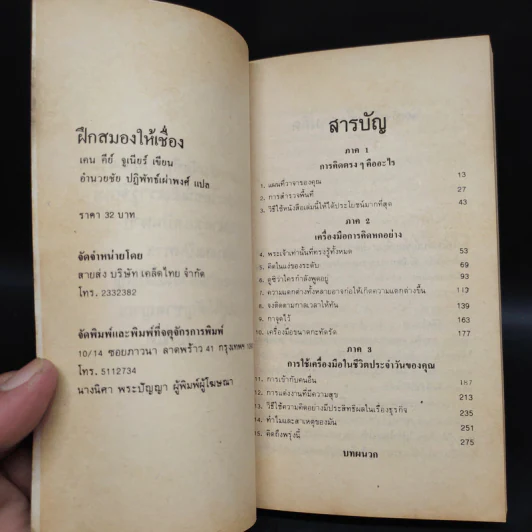 ฝึกสมองให้เชื่อง
เคน คีย์ จูเนียร์ เขียน
อำนวยชัย ปฏิพัทธ์เผ่าพงศ์ แปล
ราคา 32 บาท
จัดจำหน่ายโดย
สายส่ง บริษัท เคล็ดไทย จำกัด
โทร. 2332382
จัดพิมพ์และพิมพ์ที่จตุจักรการพิมพ์
10/14 ซอยภาวนา ลาดพร้าว 41 กรุงเทพฯ
โทร. 5112734
นางนิศา พระปัญญา ผู้พิมพ์ผู้โฆษณา
สารบัญ
ภาค 1
การคิดตรง ๆ คืออะไร
1. แผนที่วาจาของคุณ 13
2. การสำรวจพื้นที่ 27
3. วิธีใช้หนังสือเล่มนี้ให้ได้ประโยชน์มากที่สุด 43
ภาค 2
เครื่องมือการคิดหกอย่าง
4. พระเจ้าเท่านั้นที่ทรงรู้ทั้งหมด 53
5. คิดในแง่ของระดับ 69
6. ดูซิว่าใครกำลังพูดอยู่ 93
7. ความแตกต่างทั้งหลายอาจก่อให้เกิดความแตกต่างขึ้น 113
8. จงติดตามกาลเวลาให้ทัน 139
9. กาจุดไว้ 163
10. เครื่องมือขนาดกะทัดรัด 177
ภาค 3
การใช้เครื่องมือในชีวิตประจำวันของคุณ
11. การเข้ากับคนอื่น 187
12. การแต่งงานที่มีความสุข 213
13. วิธีใช้ความคิดอย่างมีประสิทธิผลในเรื่องธุรกิจ 235
14. ทำไมและสาเหตุของมัน 251
15. คิดถึงพรุ่งนี้ 275
บทผนวก